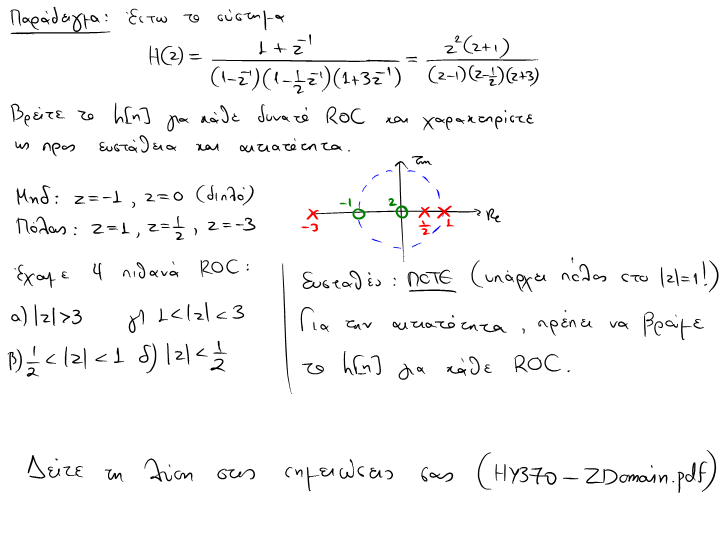 Παράδειγμα: Έστω το σύστημα
H(z) = \frac{1 + z^{-1}}{(1-z^{-1})(1-\frac{1}{2}z^{-1})(1+3z^{-1})} = \frac{z^2(z+1)}{(z-1)(z-\frac{1}{2})(z+3)}
Βρείτε το h[n] για κάθε δυνατό ROC και χαρακτηρίστε
ως προς ευστάθεια και αιτιατότητα.
Μηδ: z=-1, z=0 (διπλό)
Πόλοι: z=1, z=\frac{1}{2}, z=-3
Im
-1 2 Re
-3 \frac{1}{2} 1
Έχουμε 4 πιθανά ROC:
α) |z|>3 γ) 1<|z|<3
β) \frac{1}{2}<|z|<1 δ) |z|<\frac{1}{2}
Ευσταθές: ΠΟΤΕ (υπάρχει πόλος στο |z|=1!)
Για την αιτιατότητα, πρέπει να βρούμε
το h[n] για κάθε ROC.
Δείτε τη λύση στις σημειώσεις σας (HY370-ZDomain.pdf)